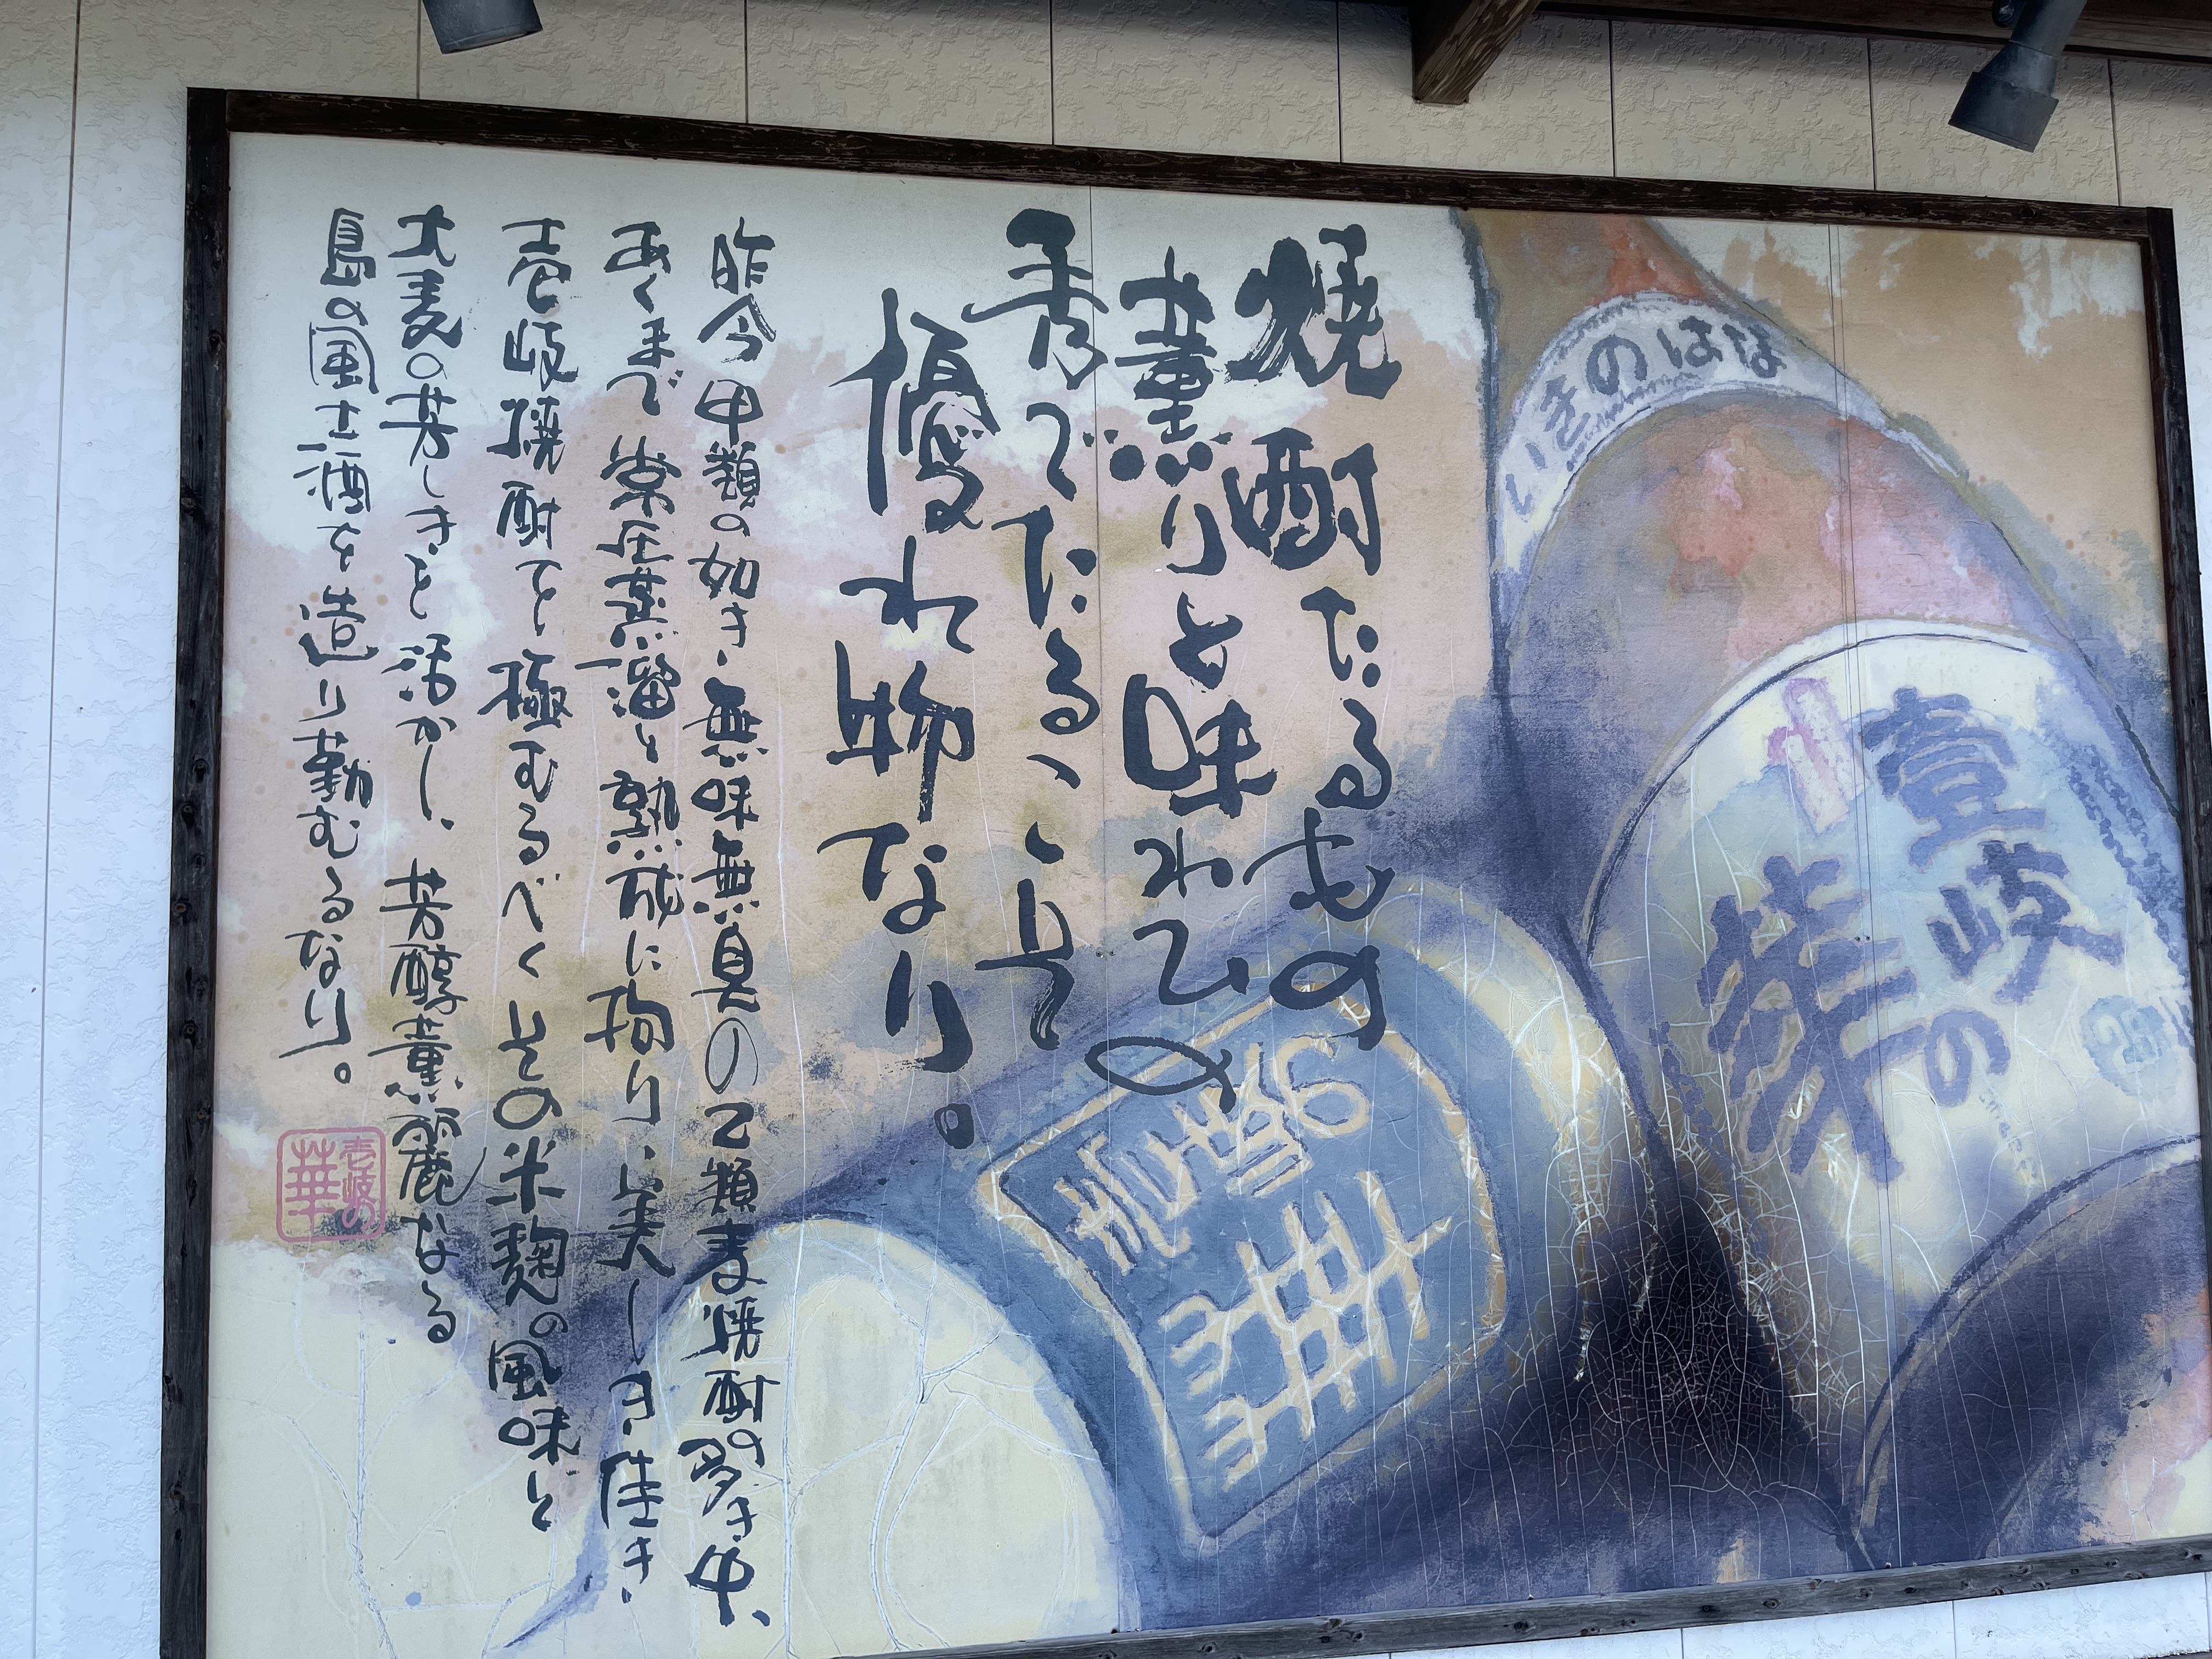 いきのはな
壹岐の
華
焼酎たるもの
薫りと味わひの
秀でたるこそ
優れ物なり。
昨今甲類の如き、無味無臭の乙類麦焼酎の多き中、
あくまで常圧蒸溜と熟成に拘り、美しき佳き、
壱岐焼酎を極むるべくその米麹の風味と
大麦の芳しさを活かし、芳醇薫麗なる
島の風土酒を造り勤むるなり。
壱岐の
華